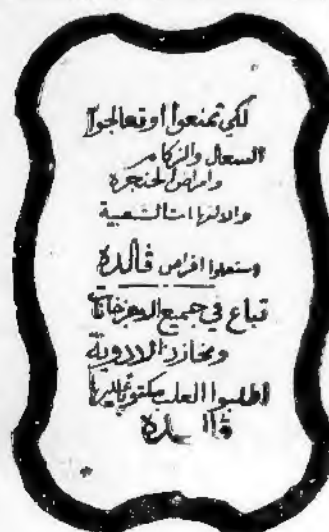 لكي تمنعوا او تعالجوا
السعال والزكام
وامراض الحنجرة
والالتهابات الشعبية
استعملوا اقراص فالده
تباع في جميع الاجزخانات
ومخازن الادوية
اطلبوا العلب مكتوبا عليها
فالده